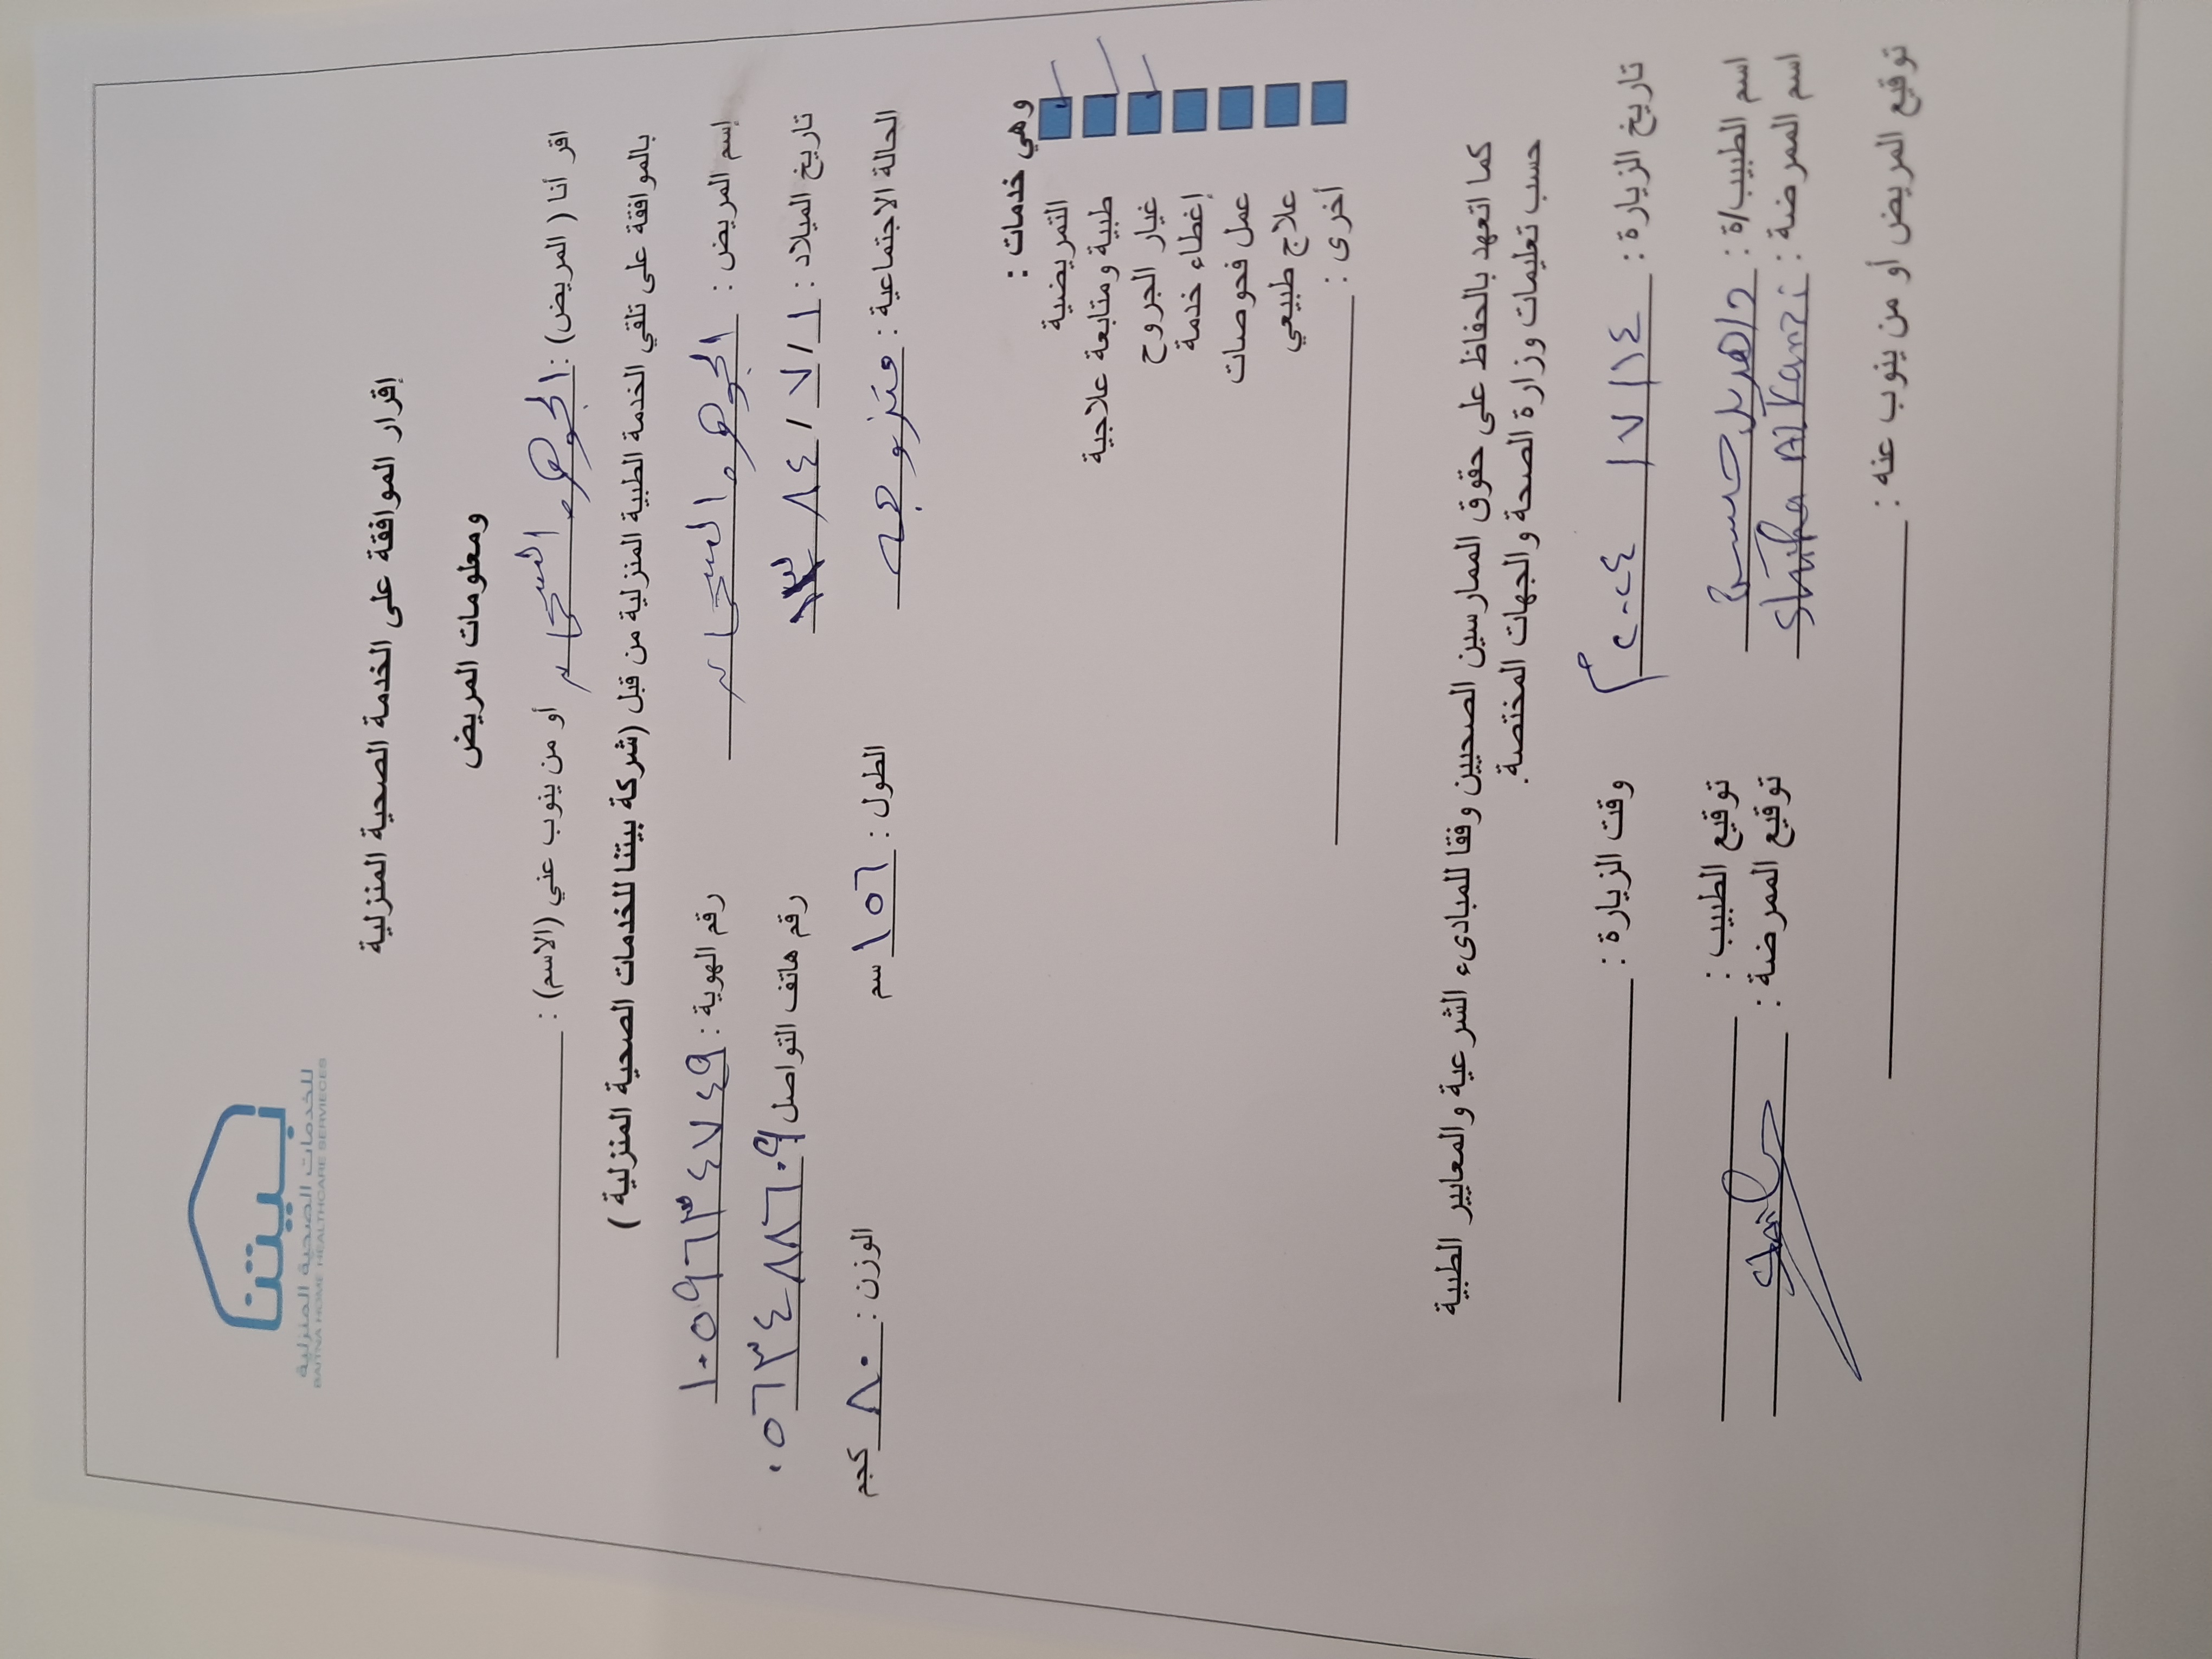 بيتنا
للخدمات الصحية المنزلية
BAITNA HOME HEALTHCARE SERVICES
إقرار الموافقة على الخدمة الصحية المنزلية
ومعلومات المريض
اقر أنا ( المريض) : الجوهره أو من ينوب عني (الاسم) :
بالموافقة على تلقي الخدمة الطبية المنزلية من قبل (شركة بيتنا للخدمات الصحية المنزلية )
إسم المريض : الجوهره رقم الهوية : ١٠٥٩٦٣٤٧٤٩
تاريخ الميلاد : ١ / ٧ / ٨٤ ١٣ رقم هاتف التواصل ٠٥٦٣٤٨٨٦٠٩
الحالة الاجتماعية : متزوجه الطول : ١٥٦ سم الوزن : ٨٠ كجم
وهي خدمات :
التمريضية
طبية ومتابعة علاجية
غيار الجروح
إغطاء خدمة
عمل فحوصات
علاج طبيعي
أخرى :
كما اتعهد بالحفاظ على حقوق الممارسين الصحيين وفقا للمبادىء الشرعية والمعايير الطبية
حسب تعليمات وزارة الصحة والجهات المختصة.
تاريخ الزيارة : ١٤ / ٧ / ٢٠٢٤ م وقت الزيارة :
اسم الطبيب/ة : توقيع الطبيب :
اسم الممرضة : توقيع الممرضة :
توقيع المريض أو من ينوب عنه :